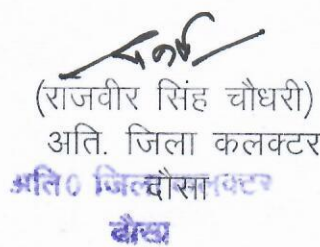 (राजवीर सिंह चौधरी)
अति. जिला कलक्टर
दौसा
अति० जिला कलक्टर
दौसा